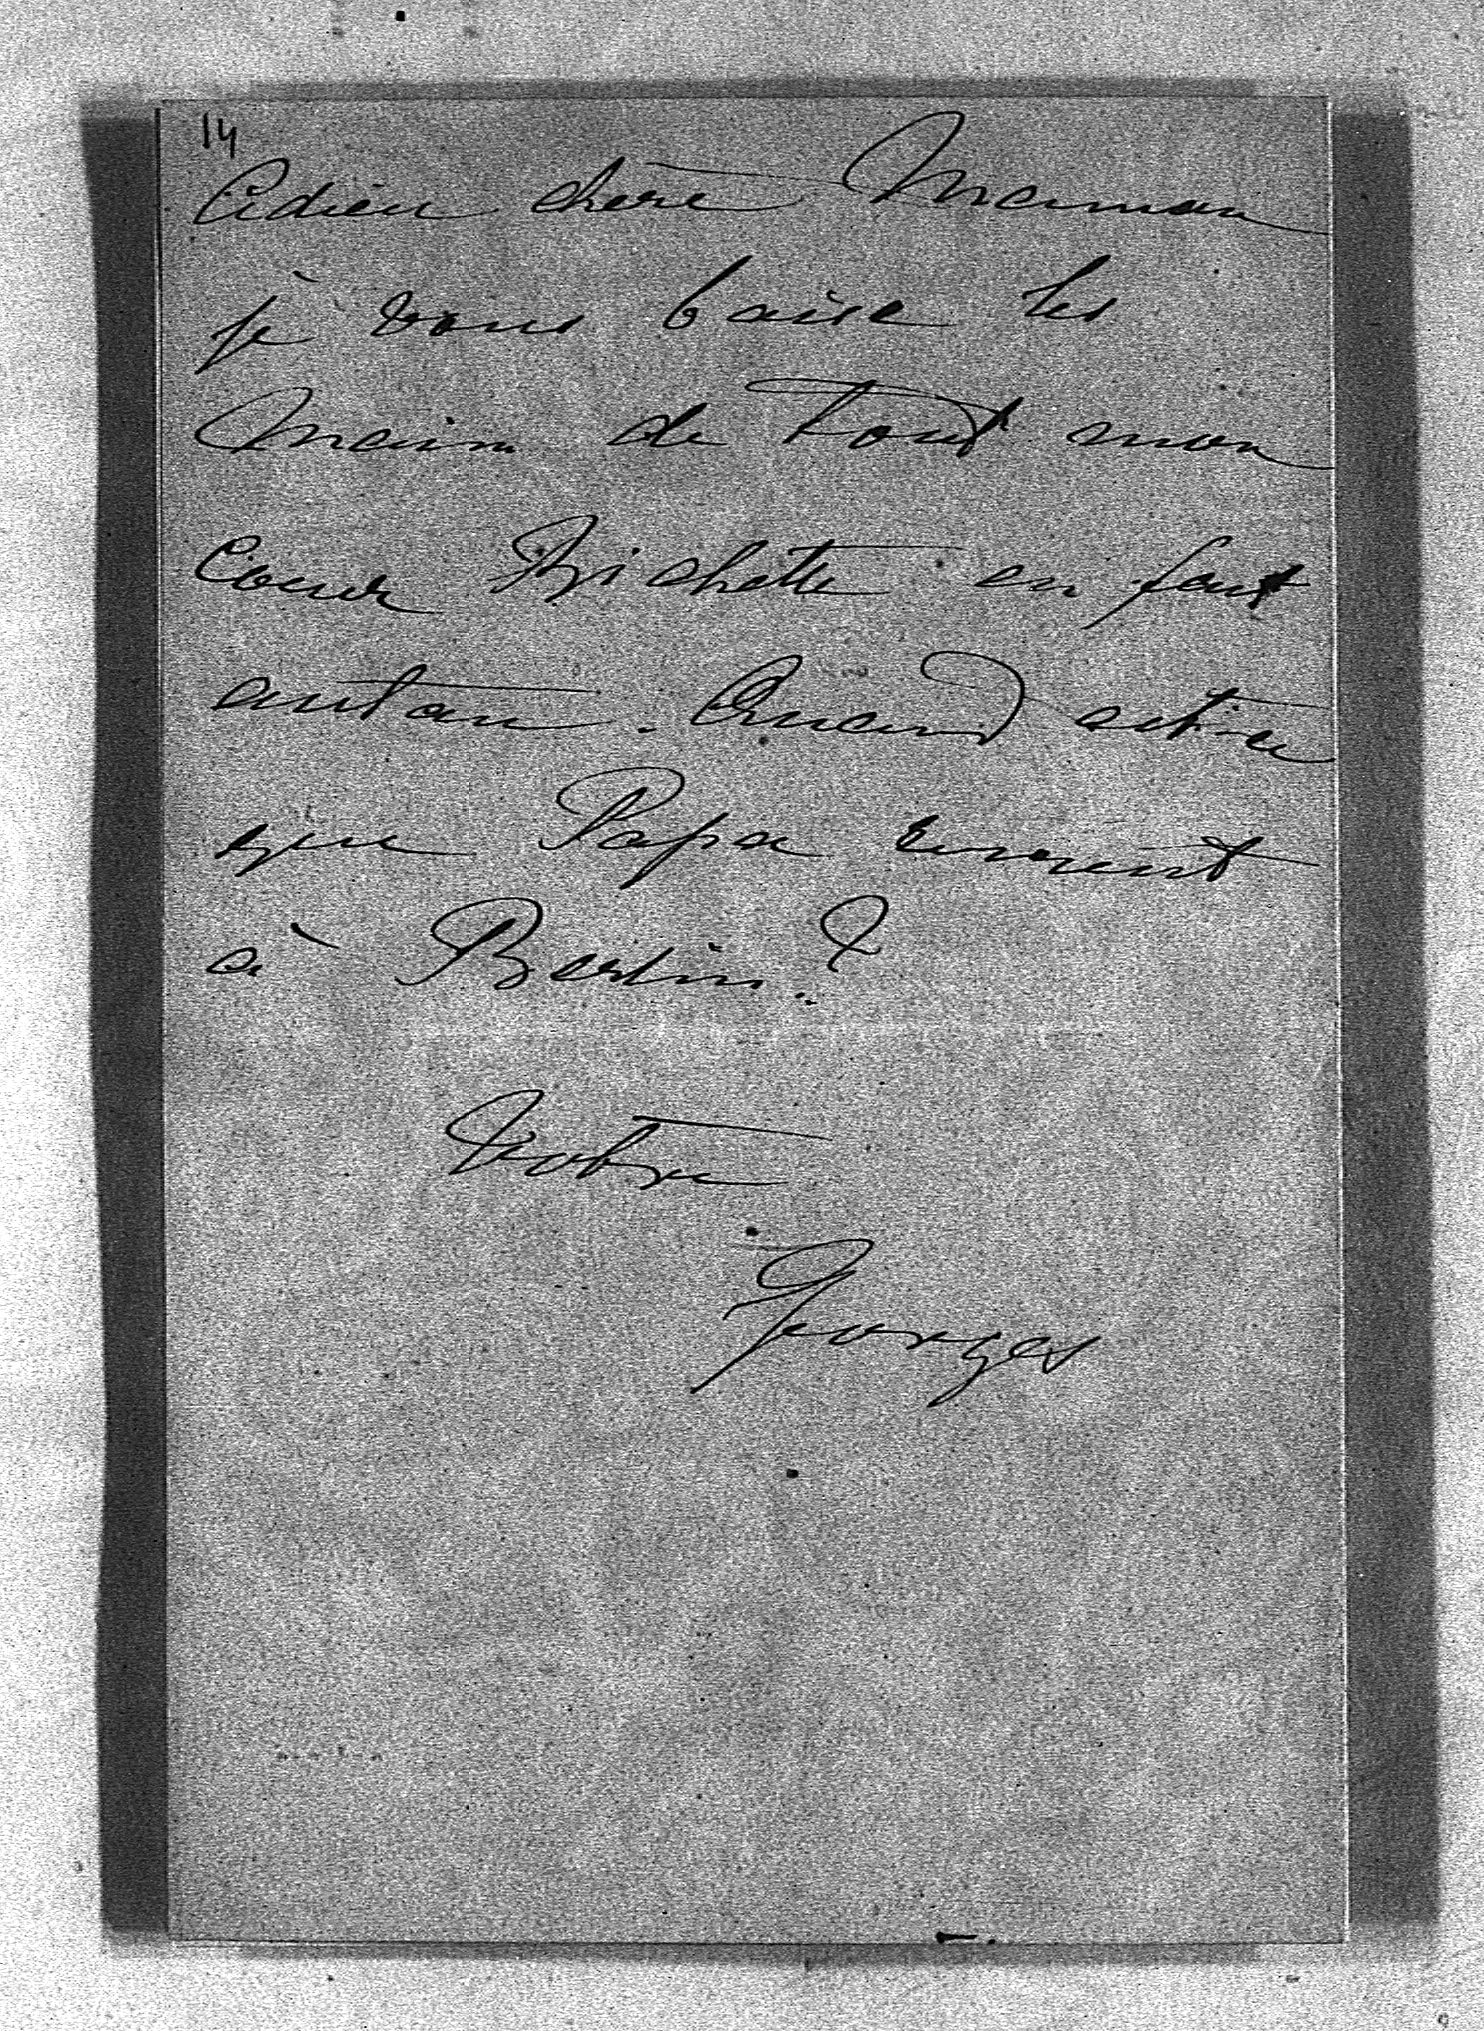 14
Adieu chère Maman
je vous baise les
Mains de tout mon
Coeur Bichette en fait
autant. Quand est-ce
que Papa revient
à Berlin?
Votre
Georges